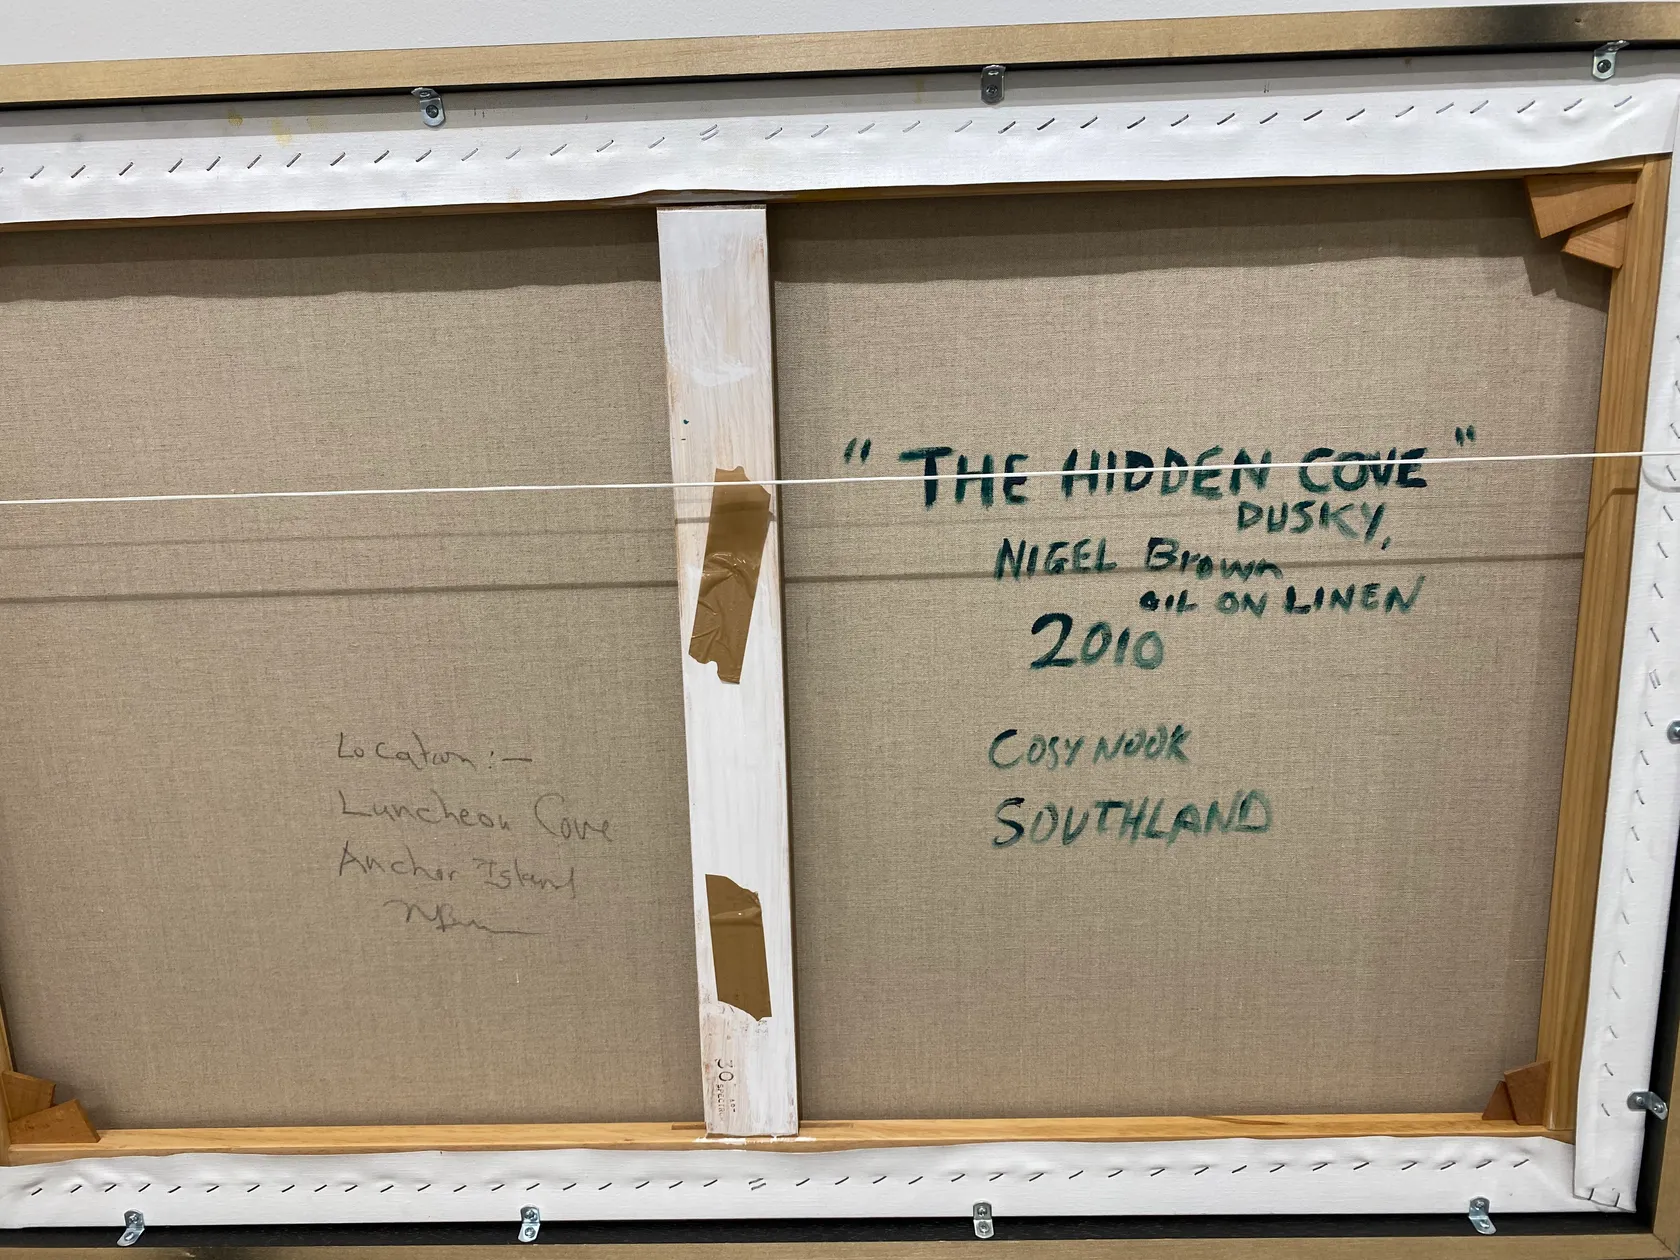 " THE HIDDEN COVE "
DUSKY,
NIGEL Brown
OIL ON LINEN
2010
COSY NOOK
SOUTHLAND
Location :-
Luncheon Cove
Anchor Island
30
ART
SPECTRUM